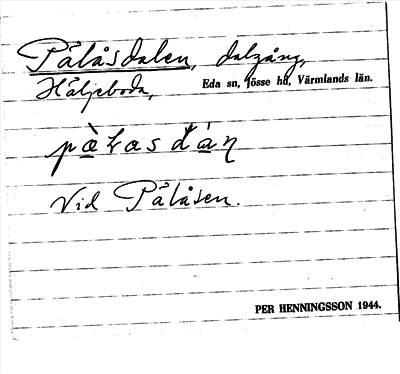 Pålåsdalen, dalgång,
Häljeboda, Eda sn, Jösse hd, Värmlands län.
Vid Pålåsen.
PER HENNINGSSON 1944.